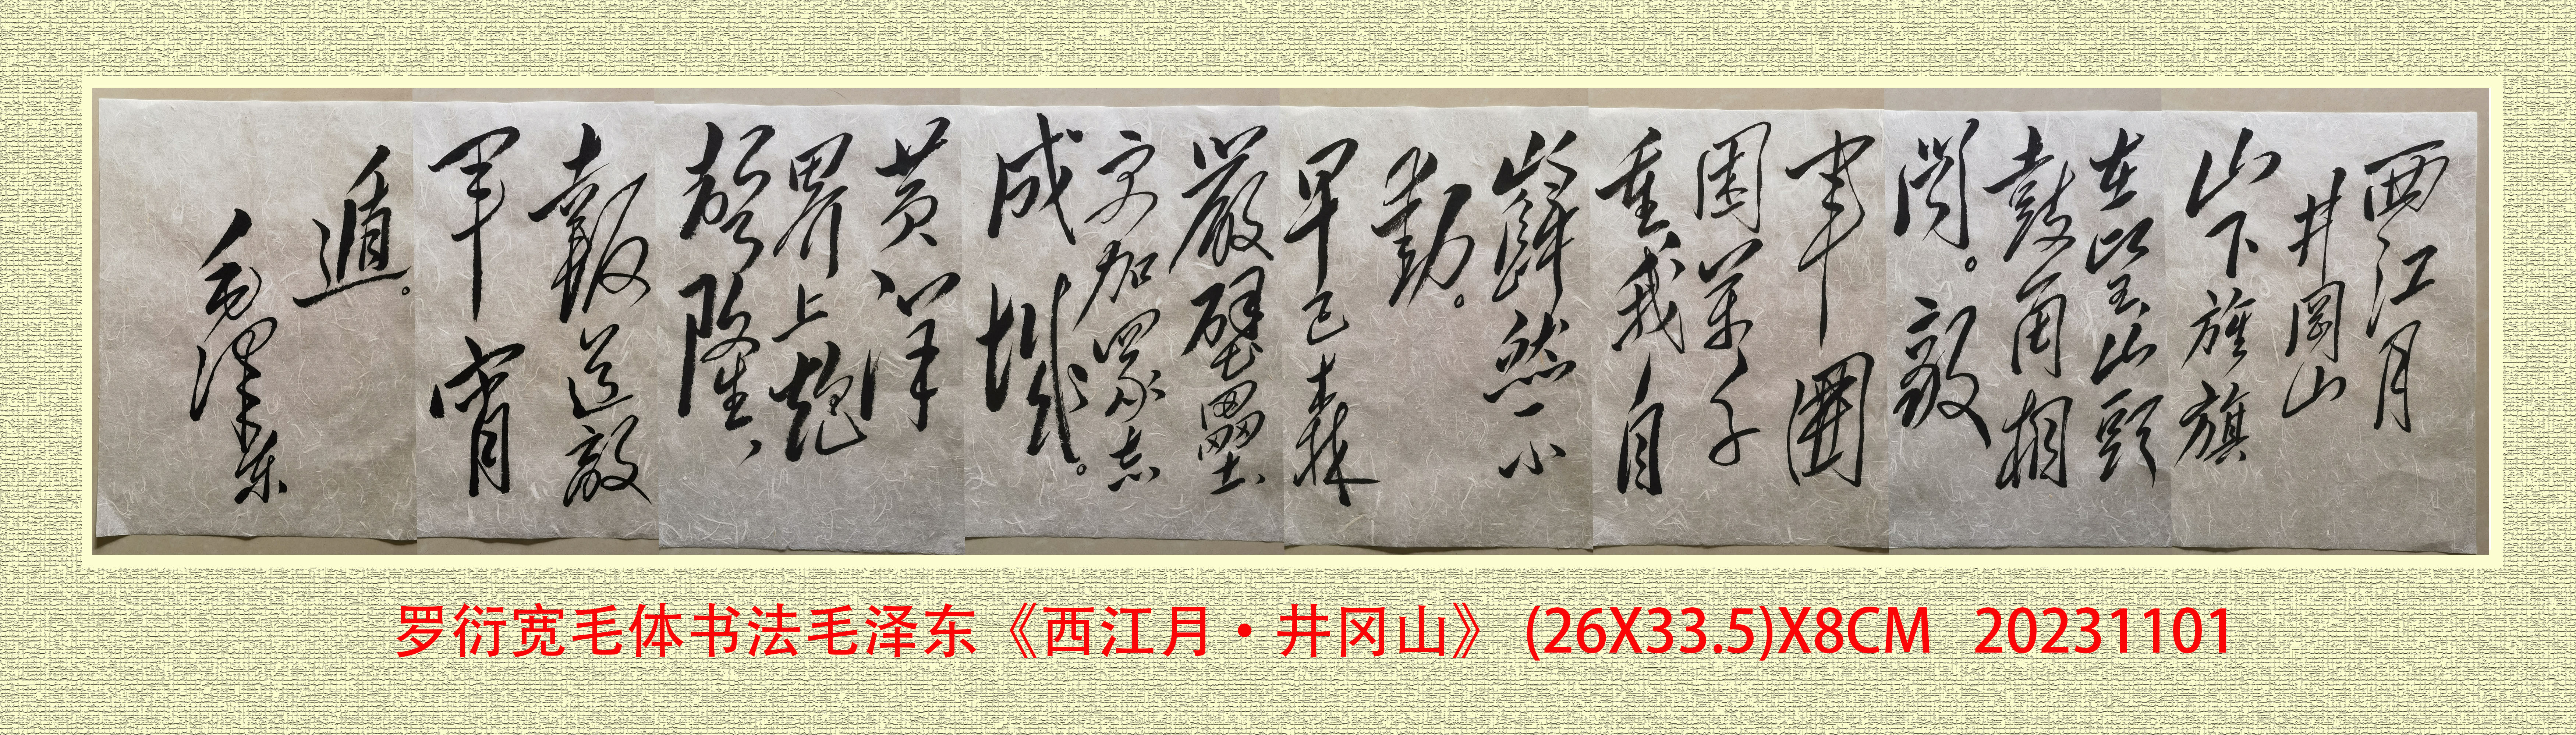 西江月
井岡山
山下旌旗
在望山頭
鼓角相
聞。敵
軍圍
困萬千
重我自
巋然不
動。
早已森
嚴壁壘
更加眾志
成城。
黄洋
界上炮
聲隆、
報道敵
軍宵
遁。
毛澤東
罗衍宽毛体书法毛泽东《西江月·井冈山》 (26X33.5)X8CM 20231101